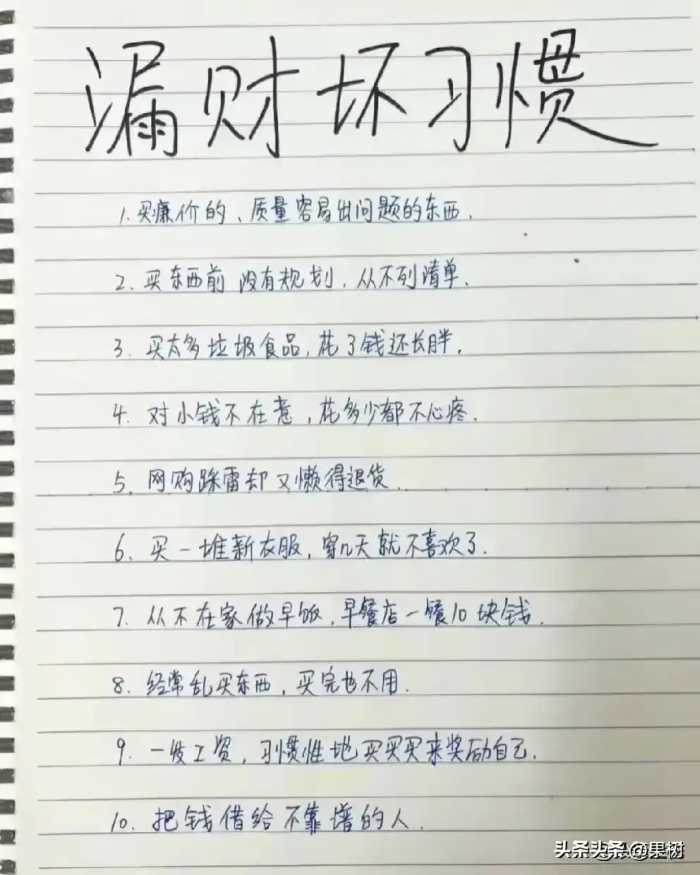 漏财坏习惯
1. 买廉价的、质量容易出问题的东西.
2. 买东西前没有规划、从不列清单.
3. 买太多垃圾食品,花了钱还长胖.
4. 对小钱不在意,花多少都不心疼.
5. 网购踩雷却又懒得退货.
6. 买一堆新衣服,穿几天就不喜欢了.
7. 从不在家做早饭,早餐店一餐10块钱.
8. 经常乱买东西,买完也不用.
9. 一发工资,习惯性地买买买来奖励自己.
10. 把钱借给不靠谱的人.
头条 @果树